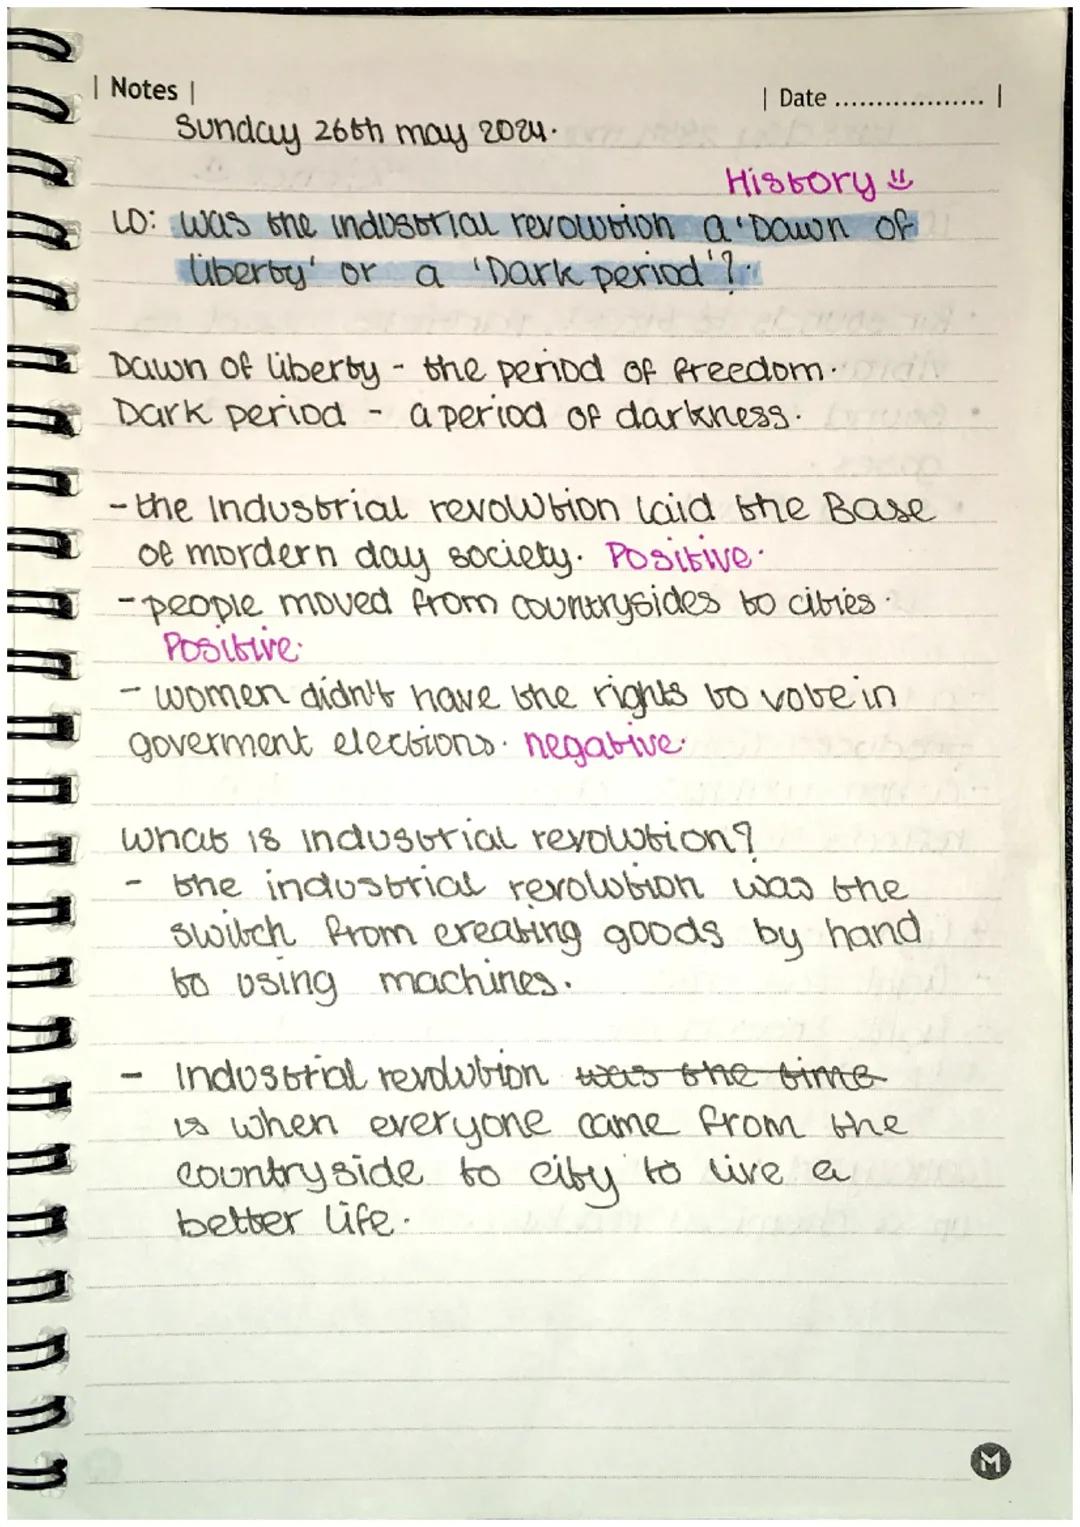 | Notes |
| Date ................... |
Sunday 26th may 2024.
History
LO: Was the industrial revolution a 'Dawn of
liberty' or a 'Dark period'?.
Dawn of liberty - the period of freedom.
Dark period - a period of darkness.
- the Industrial revolution laid the Base
of mordern day society. Positive.
- people moved from countrysides to cities.
Positive.
- women didn't have the rights to vote in
goverment elections. negative.
What is industrial revolution?
- the industrial revolution was the
switch from creating goods by hand
to using machines.
- Industrial revolution was the time
is when everyone came from the
countryside to city to live a
better life.
M